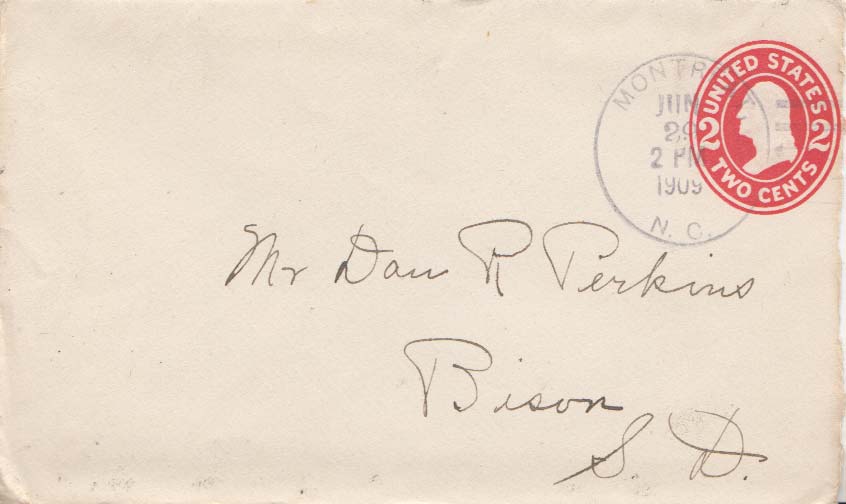 UNITED STATES
2 2
TWO CENTS
JUN
29
2 PM
1909
N. C.
Mr Dan R Perkins
Bison
S. D.